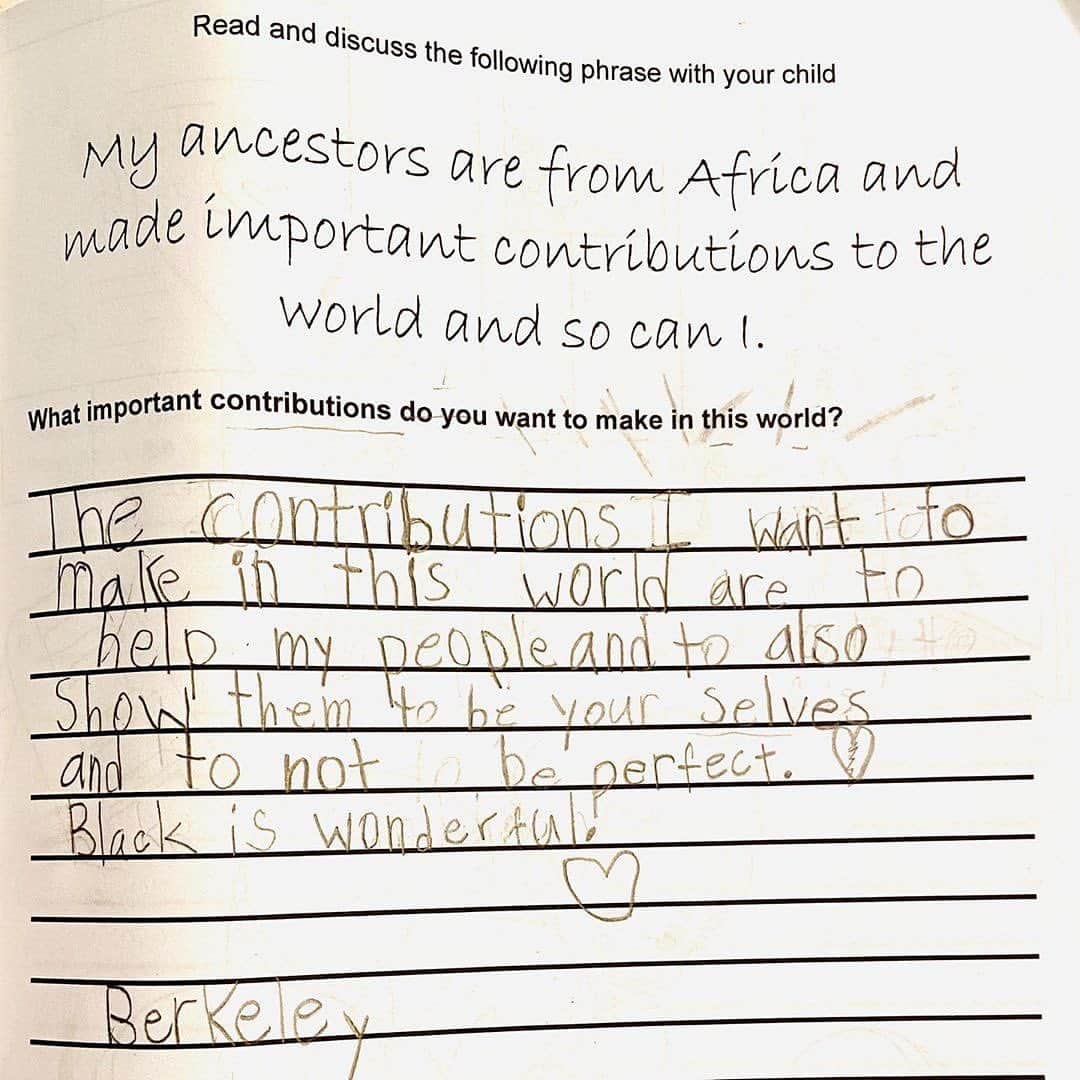 Read and discuss the following phrase with your child
My ancestors are from Africa and
made important contributions to the
world and so can I.
What important contributions do you want to make in this world?
The contributions I want to
make in this world are to
help my people and to also
Show them to be your selves
and to not be perfect.
Black is wonderful!
Berkeley